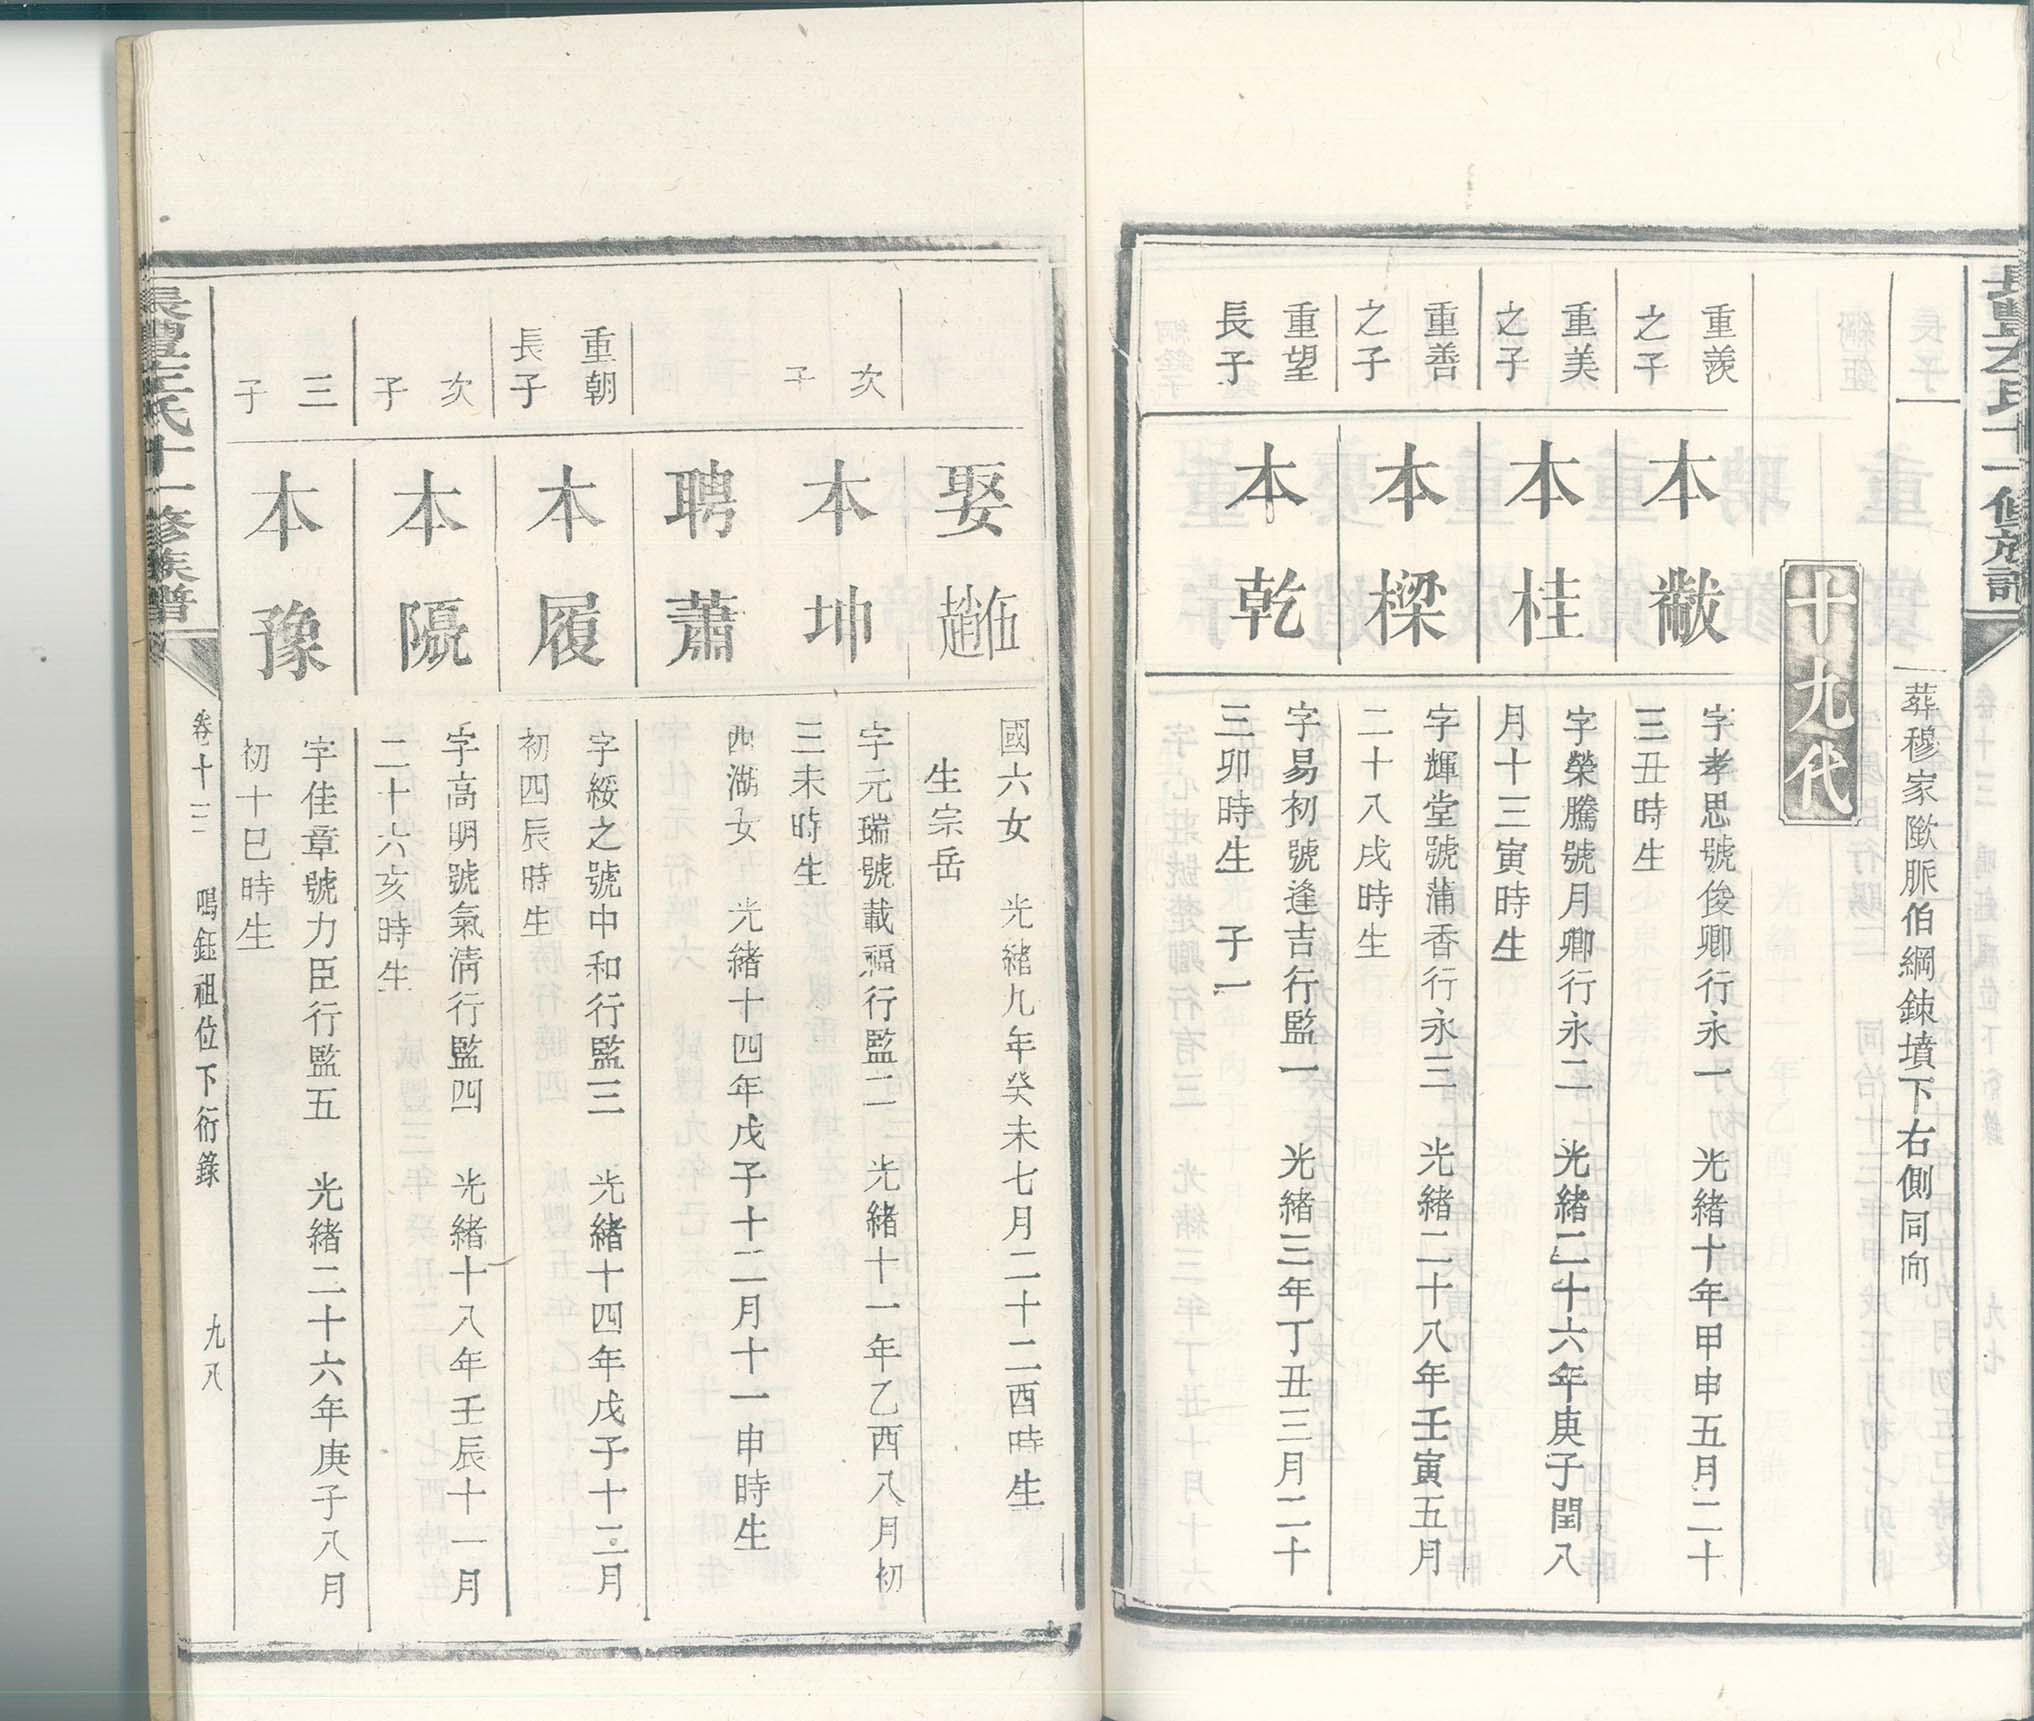 長豐李氏十一修族譜
葬穆家隞脈伯綱鋉墳下右側同向
十九代
重羨
之子
本黻
字孝思號俊卿行永一 光緒十年甲申五月二十
三丑時生
重美
之子
本桂
字榮騰號月卿行永二 光緒二十六年庚子閏八
月十三寅時生
重善
之子
本樑
字輝堂號蒲香行永三 光緒二十八年壬寅五月
二十八戌時生
重望
長子
本乾
字易初號逢吉行監一 光緒三年丁丑三月二十
三卯時生 子一
娶趙伍
國六女 光緒九年癸未七月二十二酉時生
生宗岳
次
子
本坤
字元瑞號載福行監二 光緒十一年乙酉八月初
三未時生
聘蕭
西湖女 光緒十四年戊子十二月十一申時生
重朝
長子
本履
字綏之號中和行監三 光緒十四年戊子十二月
初四辰時生
次
子
本隰
字高明號氣清行監四 光緒十八年壬辰十一月
二十六亥時生
三
子
本豫
字佳章號力臣行監五 光緒二十六年庚子八月
初十巳時生
長豐李氏十一修族譜
卷十三 鳴鈺祖位下衍錄 九八